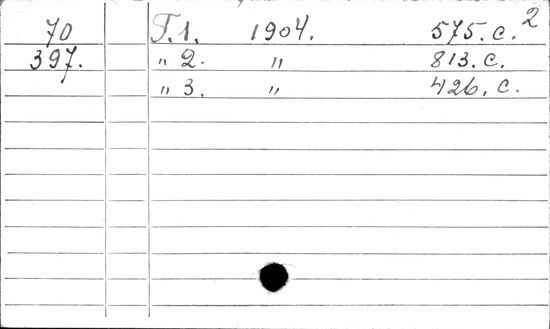 2
70 Т.1. 1904. 575. с.
397. " 2. " 813. с.
" 3. " 426. с.